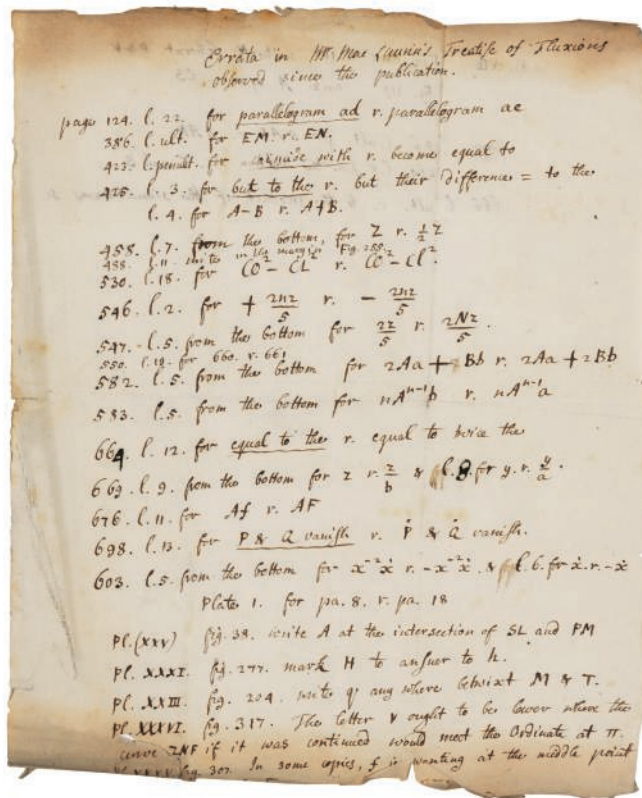 Errata in Mr. Mac Laurin's Treatise of Fluxions
observed since the publication.
page 124. l. 22. for parallelogram ad r. parallelogram ae
386. l. ult. for EM. r. EN.
423. l. penult. for with r. become equal to
425. l. 3. for but to the r. but their difference = to the
l. 4. for A-B r. A+B.
458. l. 7. from the bottom, for Z r. ½ Z
488. l. 11. write in the margin Fig. 255.
530. l. 18. for CO² - CL² r. CO² - Cl².
546. l. 2. for + 2nz/5 r. - 2nz/5
547. l. 5. from the bottom for 2z/5 r. 2Nz/5.
550. l. 19. for 660. r. 661
582. l. 5. from the bottom for 2Aa + Bb r. 2Aa + 2Bb
583. l. 5. from the bottom for nAⁿ⁻¹b r. nAⁿ⁻¹a
664. l. 12. for equal to the r. equal to twice the
669. l. 9. from the bottom for z r. z/b & l. 8. for y. r. y/a.
676. l. 11. for Af r. AF
698. l. 13. for P & Q vanish r. Ṗ & Q̇ vanish.
603. l. 5. from the bottom for x⁻²ẋ r. -x⁻²ẋ. & l. 6. for ẋ. r. -ẋ
Plate 1. for pa. 8. r. pa. 18
Pl. (XXV) fig. 38. write A at the intersection of SL and PM
Pl. XXXI. fig. 277. mark H to answer to h.
Pl. XXIII. fig. 204. write q, any where betwixt M & T.
Pl. XXXVI. fig. 317. The letter V ought to be lower where the
curve ZNF if it was continued would meet the Ordinate at π.
fig. 307. In some copies, f is wanting at the middle point